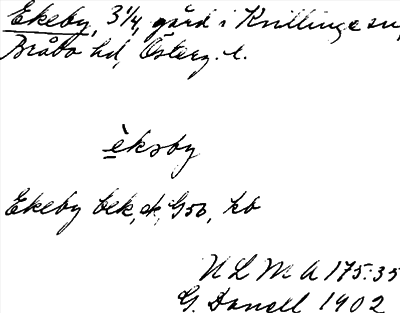 Ekeby, 3 1/4, gård i Kvillinge sn,
Bråbo hd, Österg. l.
èksby
Ekeby bek, ck, G50, kb
ULMA 175:35
G. Danell 1902